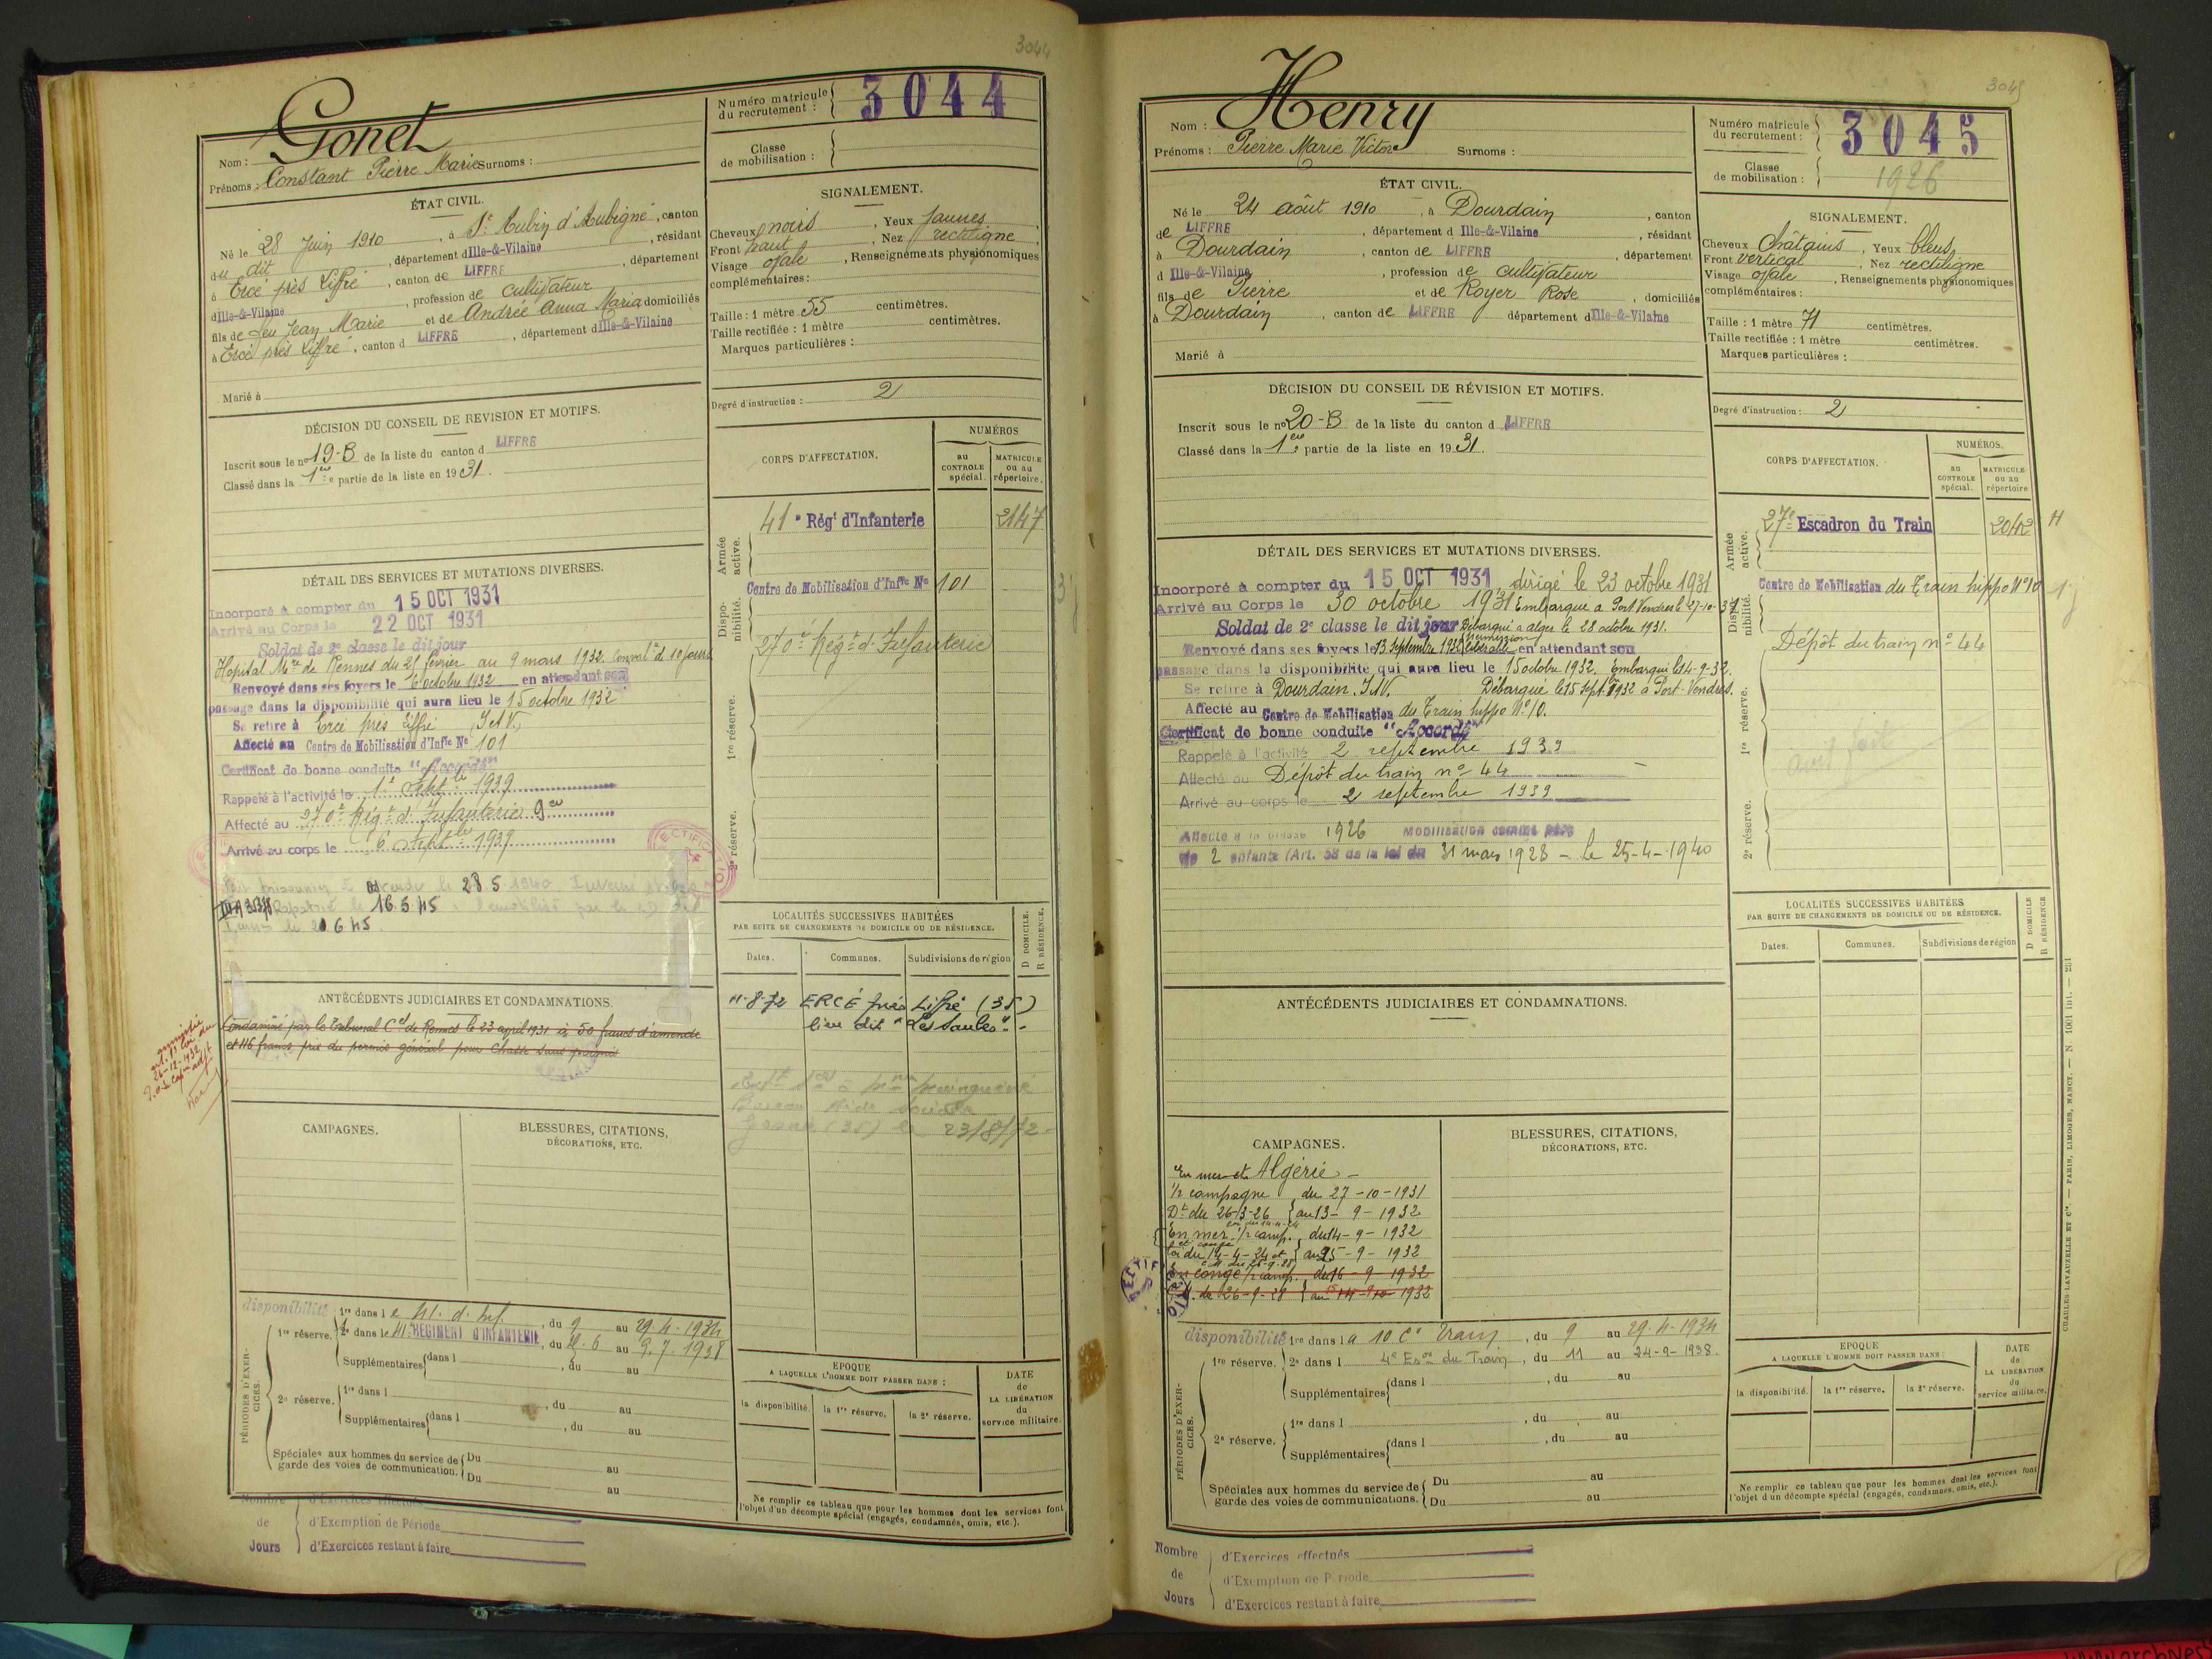 3044
Nom : Gonet
Prénoms : Constant Pierre Marie Surnoms :
Numéro matricule du recrutement : 3044
Classe de mobilisation :
ÉTAT CIVIL.
Né le 28 Juin 1910, à St Aubin d'Aubigné, canton
du dit, département d Ille-&-Vilaine, résidant
à Ercé près Liffré, canton de LIFFRE, département
d Ille-&-Vilaine, profession de cultivateur
fils de feu Jean Marie et de Andrée Anna Maria domiciliés
à Ercé près Liffré, canton d LIFFRE, département d Ille-&-Vilaine
Marié à
SIGNALEMENT.
Cheveux noirs, Yeux jaunes,
Front haut, Nez rectiligne,
Visage ovale, Renseignements physionomiques
complémentaires :
Taille : 1 mètre 55 centimètres.
Taille rectifiée : 1 mètre centimètres.
Marques particulières :
Degré d'instruction : 2
DÉCISION DU CONSEIL DE REVISION ET MOTIFS.
Inscrit sous le no 19-B de la liste du canton d LIFFRE
Classé dans la 1ère partie de la liste en 1931.
CORPS D'AFFECTATION.
NUMÉROS
au CONTROLE spécial.
MATRICULE ou au répertoire.
Armée active.
41e Régt d'Infanterie 2147
Dispo-nibilité.
Centre de Mobilisation d'Inffie No 101
270e Régt d'Infanterie
1re réserve.
2e réserve.
DÉTAIL DES SERVICES ET MUTATIONS DIVERSES.
Incorporé à compter du 15 OCT 1931
Arrivé au Corps le 22 OCT 1931
Soldat de 2e classe le dit jour
Hopital Mre de Rennes du 25 février au 9 mars 1932. Convalce de 10 jours
Renvoyé dans ses foyers le 6 octobre 1932 en attendant son
passage dans la disponibilité qui aura lieu le 15 octobre 1932
Se retire à Ercé près Liffré (I et V.)
Affecté au Centre de Mobilisation d'Inffie No 101
Certificat de bonne conduite "Accordé"
Rappelé à l'activité le 1er Septbre 1939
Affecté au 270e Régt d'Infanterie
Arrivé au corps le 6 Septbre 1939
Fait prisonnier le 28.5.1940 Interné
Rapatrié le 16.5.45.
le 21 6 45
ANTÉCÉDENTS JUDICIAIRES ET CONDAMNATIONS.
Condamné par le Tribunal Cel de Rennes le 23 avril 1931 à 50 francs d'amende
et 116 francs prix du permis général pour Chasse sans permis
amnistié
26-12-1932
LOCALITÉS SUCCESSIVES HABITÉES
PAR SUITE DE CHANGEMENTS DE DOMICILE OU DE RÉSIDENCE.
D DOMICILE.
R RÉSIDENCE.
Dates. Communes. Subdivisions de région
11-8-72 ERCÉ près Liffré (35)
lieu dit "Les Saules".
23/8/72
CAMPAGNES.
BLESSURES, CITATIONS,
DÉCORATIONS, ETC.
PÉRIODES D'EXER-CICES.
disponibilité 1re dans l e 41. d. Inf., du 9 au 29.4.1934
1re réserve. 2e dans le 41e REGIMENT D'INFANTERIE, du 6 au 9.7.1938
Supplémentaires dans l , du au
2e réserve. 1re dans l , du au
Supplémentaires dans l , du au
Spéciales aux hommes du service de garde des voies de communication. Du au
Du au
EPOQUE
A LAQUELLE L'HOMME DOIT PASSER DANS :
la disponibilité. la 1re réserve. la 2e réserve.
DATE de LA LIBÉRATION du service militaire.
Ne remplir ce tableau que pour les hommes dont les services font
l'objet d'un décompte spécial (engagés, condamnés, omis, etc.).
Nombre d'Exercices effectués
de d'Exemption de Période
Jours d'Exercices restant à faire
3045
Nom : Henry
Prénoms : Pierre Marie Victor Surnoms :
Numéro matricule du recrutement : 3045
Classe de mobilisation : 1926
ÉTAT CIVIL.
Né le 24 août 1910, à Dourdain, canton
de LIFFRE, département d Ille-&-Vilaine, résidant
à Dourdain, canton de LIFFRE, département
d Ille-&-Vilaine, profession de cultivateur
fils de Pierre et de Royer Rose, domiciliés
à Dourdain, canton de LIFFRE département d Ille-&-Vilaine
Marié à
SIGNALEMENT.
Cheveux châtains, Yeux bleus,
Front vertical, Nez rectiligne
Visage ovale, Renseignements physionomiques
complémentaires :
Taille : 1 mètre 71 centimètres.
Taille rectifiée : 1 mètre centimètres.
Marques particulières :
Degré d'instruction : 2
DÉCISION DU CONSEIL DE RÉVISION ET MOTIFS.
Inscrit sous le no 20-B de la liste du canton d LIFFRE
Classé dans la 1ère partie de la liste en 1931.
CORPS D'AFFECTATION.
NUMÉROS.
au CONTROLE spécial.
MATRICULE ou au répertoire
Armée active.
27e Escadron du Train 2042
Dispo-nibilité.
Centre de Mobilisation du Train hippo No 10
Dépôt du train no 44
1re réserve.
2e réserve.
DÉTAIL DES SERVICES ET MUTATIONS DIVERSES.
Incorporé à compter du 15 OCT 1931 dirigé le 23 octobre 1931
Arrivé au Corps le 30 octobre 1931 Embarqué à Port Vendres le 27-10-31
Soldat de 2e classe le dit jour Débarqué à Alger le 28 octobre 1931.
Renvoyé dans ses foyers le 13 septembre 1932 permission libérable en attendant son
passage dans la disponibilité qui aura lieu le 15 octobre 1932. Embarqué le 14-9-32.
Se retire à Dourdain. I&V. Débarqué le 15 Sept. 1932 à Port-Vendres.
Affecté au Centre de Mobilisation du Train hippo No 10.
Certificat de bonne conduite "Accordé"
Rappelé à l'activité 2 septembre 1939
Affecté au Dépôt du train no 44
Arrivé au corps le 2 septembre 1939
Affecté à la classe 1926 Mobilisation comme père
de 2 enfants (Art. 58 de la loi du 31 mars 1928 - Le 25-4-1940
ANTÉCÉDENTS JUDICIAIRES ET CONDAMNATIONS.
LOCALITÉS SUCCESSIVES HABITÉES
PAR SUITE DE CHANGEMENTS DE DOMICILE OU DE RÉSIDENCE.
D DOMICILE
R RÉSIDENCE
Dates. Communes. Subdivisions de région
CAMPAGNES.
BLESSURES, CITATIONS,
DÉCORATIONS, ETC.
En mer et Algérie -
1/2 campagne du 27-10-1931
Dt du 26-3-26 au 13-9-1932
En mer 1/2 camp. du 14-9-1932
loi du 14-4-24 et au 15-9-1932
En congé 1/2 camp. du 16-9-1932
de 26-9-28 au 1932
PÉRIODES D'EXER-CICES.
disponibilité 1re dans la 10 Cie Train, du 9 au 29.4.1934
1re réserve. 2e dans l 4e Eson du Train, du 11 au 24-9-1938.
Supplémentaires dans l , du au
2e réserve. 1re dans l , du au
Supplémentaires dans l , du au
Spéciales aux hommes du service de garde des voies de communications. Du au
Du au
EPOQUE
A LAQUELLE L'HOMME DOIT PASSER DANS :
la disponibilité. la 1re réserve. la 2e réserve.
DATE de LA LIBÉRATION du service militaire.
Ne remplir ce tableau que pour les hommes dont les services font
l'objet d'un décompte spécial (engagés, condamnés, omis, etc.).
Nombre d'Exercices effectués
de d'Exemption de Période
Jours d'Exercices restant à faire
CHARLES-LAVAUZELLE ET Cie. — PARIS, LIMOGES, NANCY. —